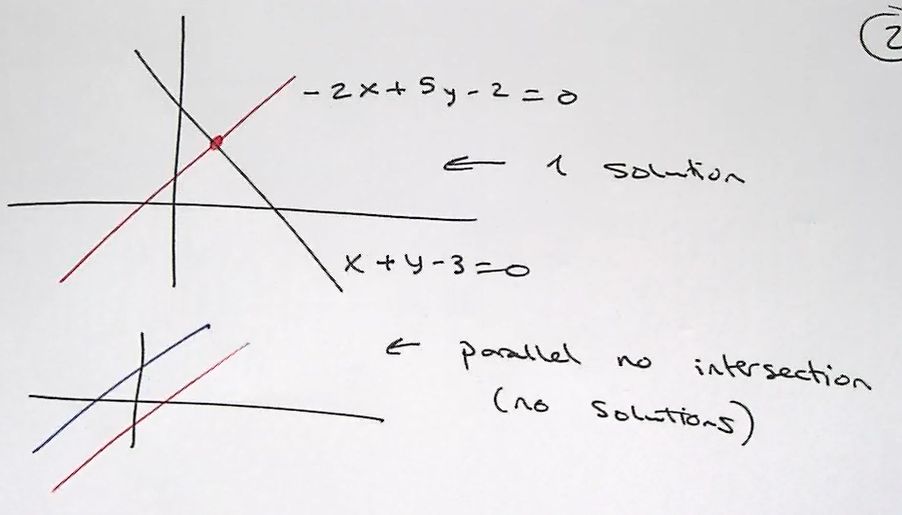 2
-2x+5y-2=0
← 1 solution
x+y-3=0
← parallel no intersection
(no solutions)